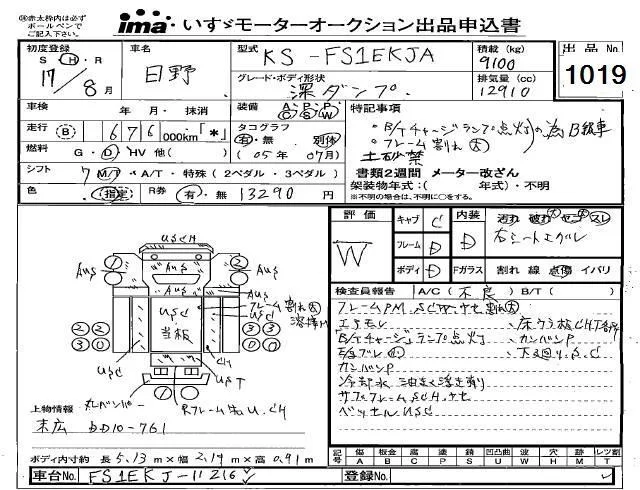 ㊟赤太枠内は必ずボールペンでご記入下さい。
ima いすゞモーターオークション出品申込書
初度登録 S Ⓗ・R 17/8月
車名 日野
型式 KS-FS1EKJA
積載(kg) 9100
出品No. 1019
グレード・ボディ形状 深ダンプ
排気量(cc) 12910
車検 年・月・抹消
装備 A C P S P W
特記事項
・B/Tチャージランプ点灯の為B級車
・フレーム割れ大
土砂禁
走行 Ⓑ 676 000km「*」
タコグラフ 有・無 別体
燃料 G・Ⓓ HV 他( )
(05年07月)
書類2週間 メーター改ざん
シフト 7 M/T・A/T・特殊(2ペダル・3ペダル)
架装物年式:( 年式)・不明
※不明の場合は、不明に○をする。
色 指定 R券 有・無 13290円
評価 W
キャブ C
フレーム D
ボディ D
内装 D
汚れ 破れ コゲ スレ
右シートエグレ
Fガラス 割れ 線 点傷 イバリ
検査員報告 A/C(不良) B/T( )
フレームPM、SCW、サセ割れ大
エアモレ
・床クラ板CH T各所
B/Tチャージランプ点灯
・カンバンP
・下廻り、S、C
カンバンP
冷却水 油まく浮き有り
サブフレームSCH、サセ
ベッセルUSC
USCH
AUS
AUS
AUS
AUS
USC
当板
フレーム割れ大
USC
溶接M
USC
CH
UST
丸ベンパー
RフレームサU、CH
上物情報
末広 DD10-761
ボディ内寸約 長5.13m×幅2.19m×高0.91m
記号 傷 A 板金 B 腐 C 凹凸曲 U 波 W 穴 H 跡 M レツ割 T
車台No. FS1EKJ-11216
登録No.